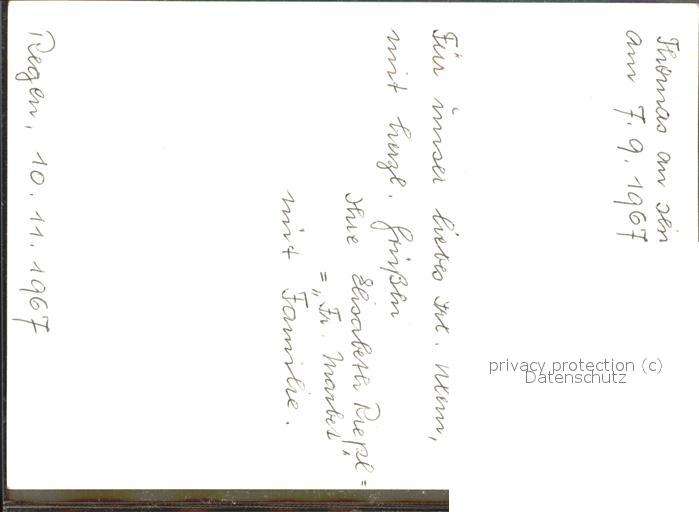 Thomas an sein
am 7.9.1967
Für unser liebes Frl.
mit herzl. Grüßen
Ihre Elisabeth Riepl =
= „Fr. Marbel"
mit Familie.
Regen, 10.11.1967
privacy protection (c)
Datenschutz